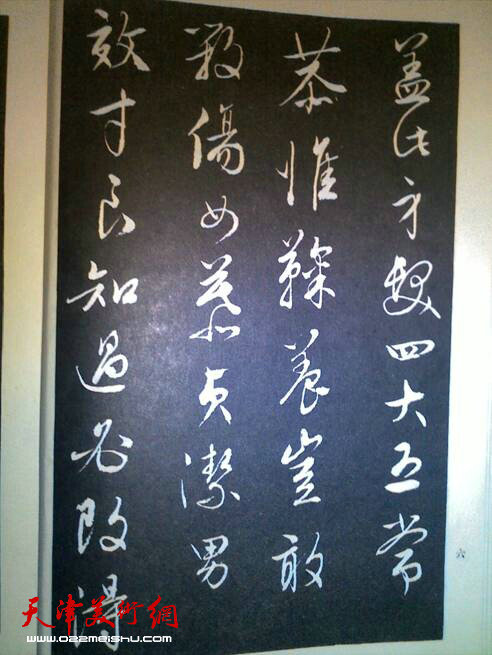 盖此身髮四大五常
恭惟鞠養豈敢
毀傷女慕貞潔男
效才良知過必改得
六
天津美術網
www.022meishu.com